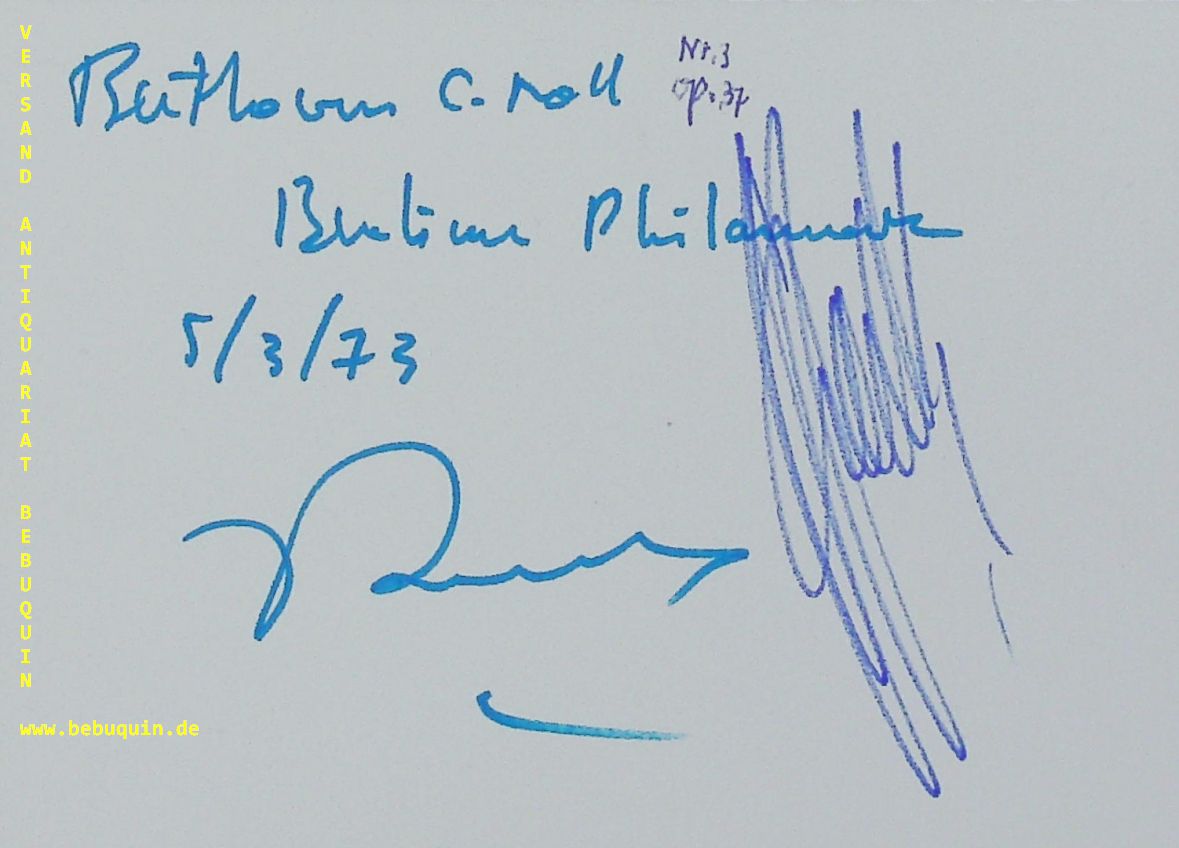 Beethoven C. Moll
Nr. 3
op. 37
Berliner Philharmon
5/3/73
VERSAND ANTIQUARIAT BEBUQUIN
www.bebuquin.de